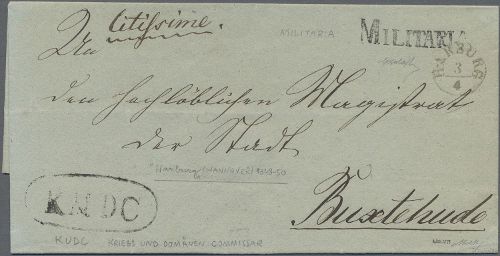 citissime.
MILITARIA
MILITARIA
HARBURG
3
4
An
den hochlöblichen Magistrat
der Stadt
Harburg (HANNOVER) 1849-50
Buxtehude
KUDC
KUDC KRIEGS UND DOMÄNEN COMMISSAR